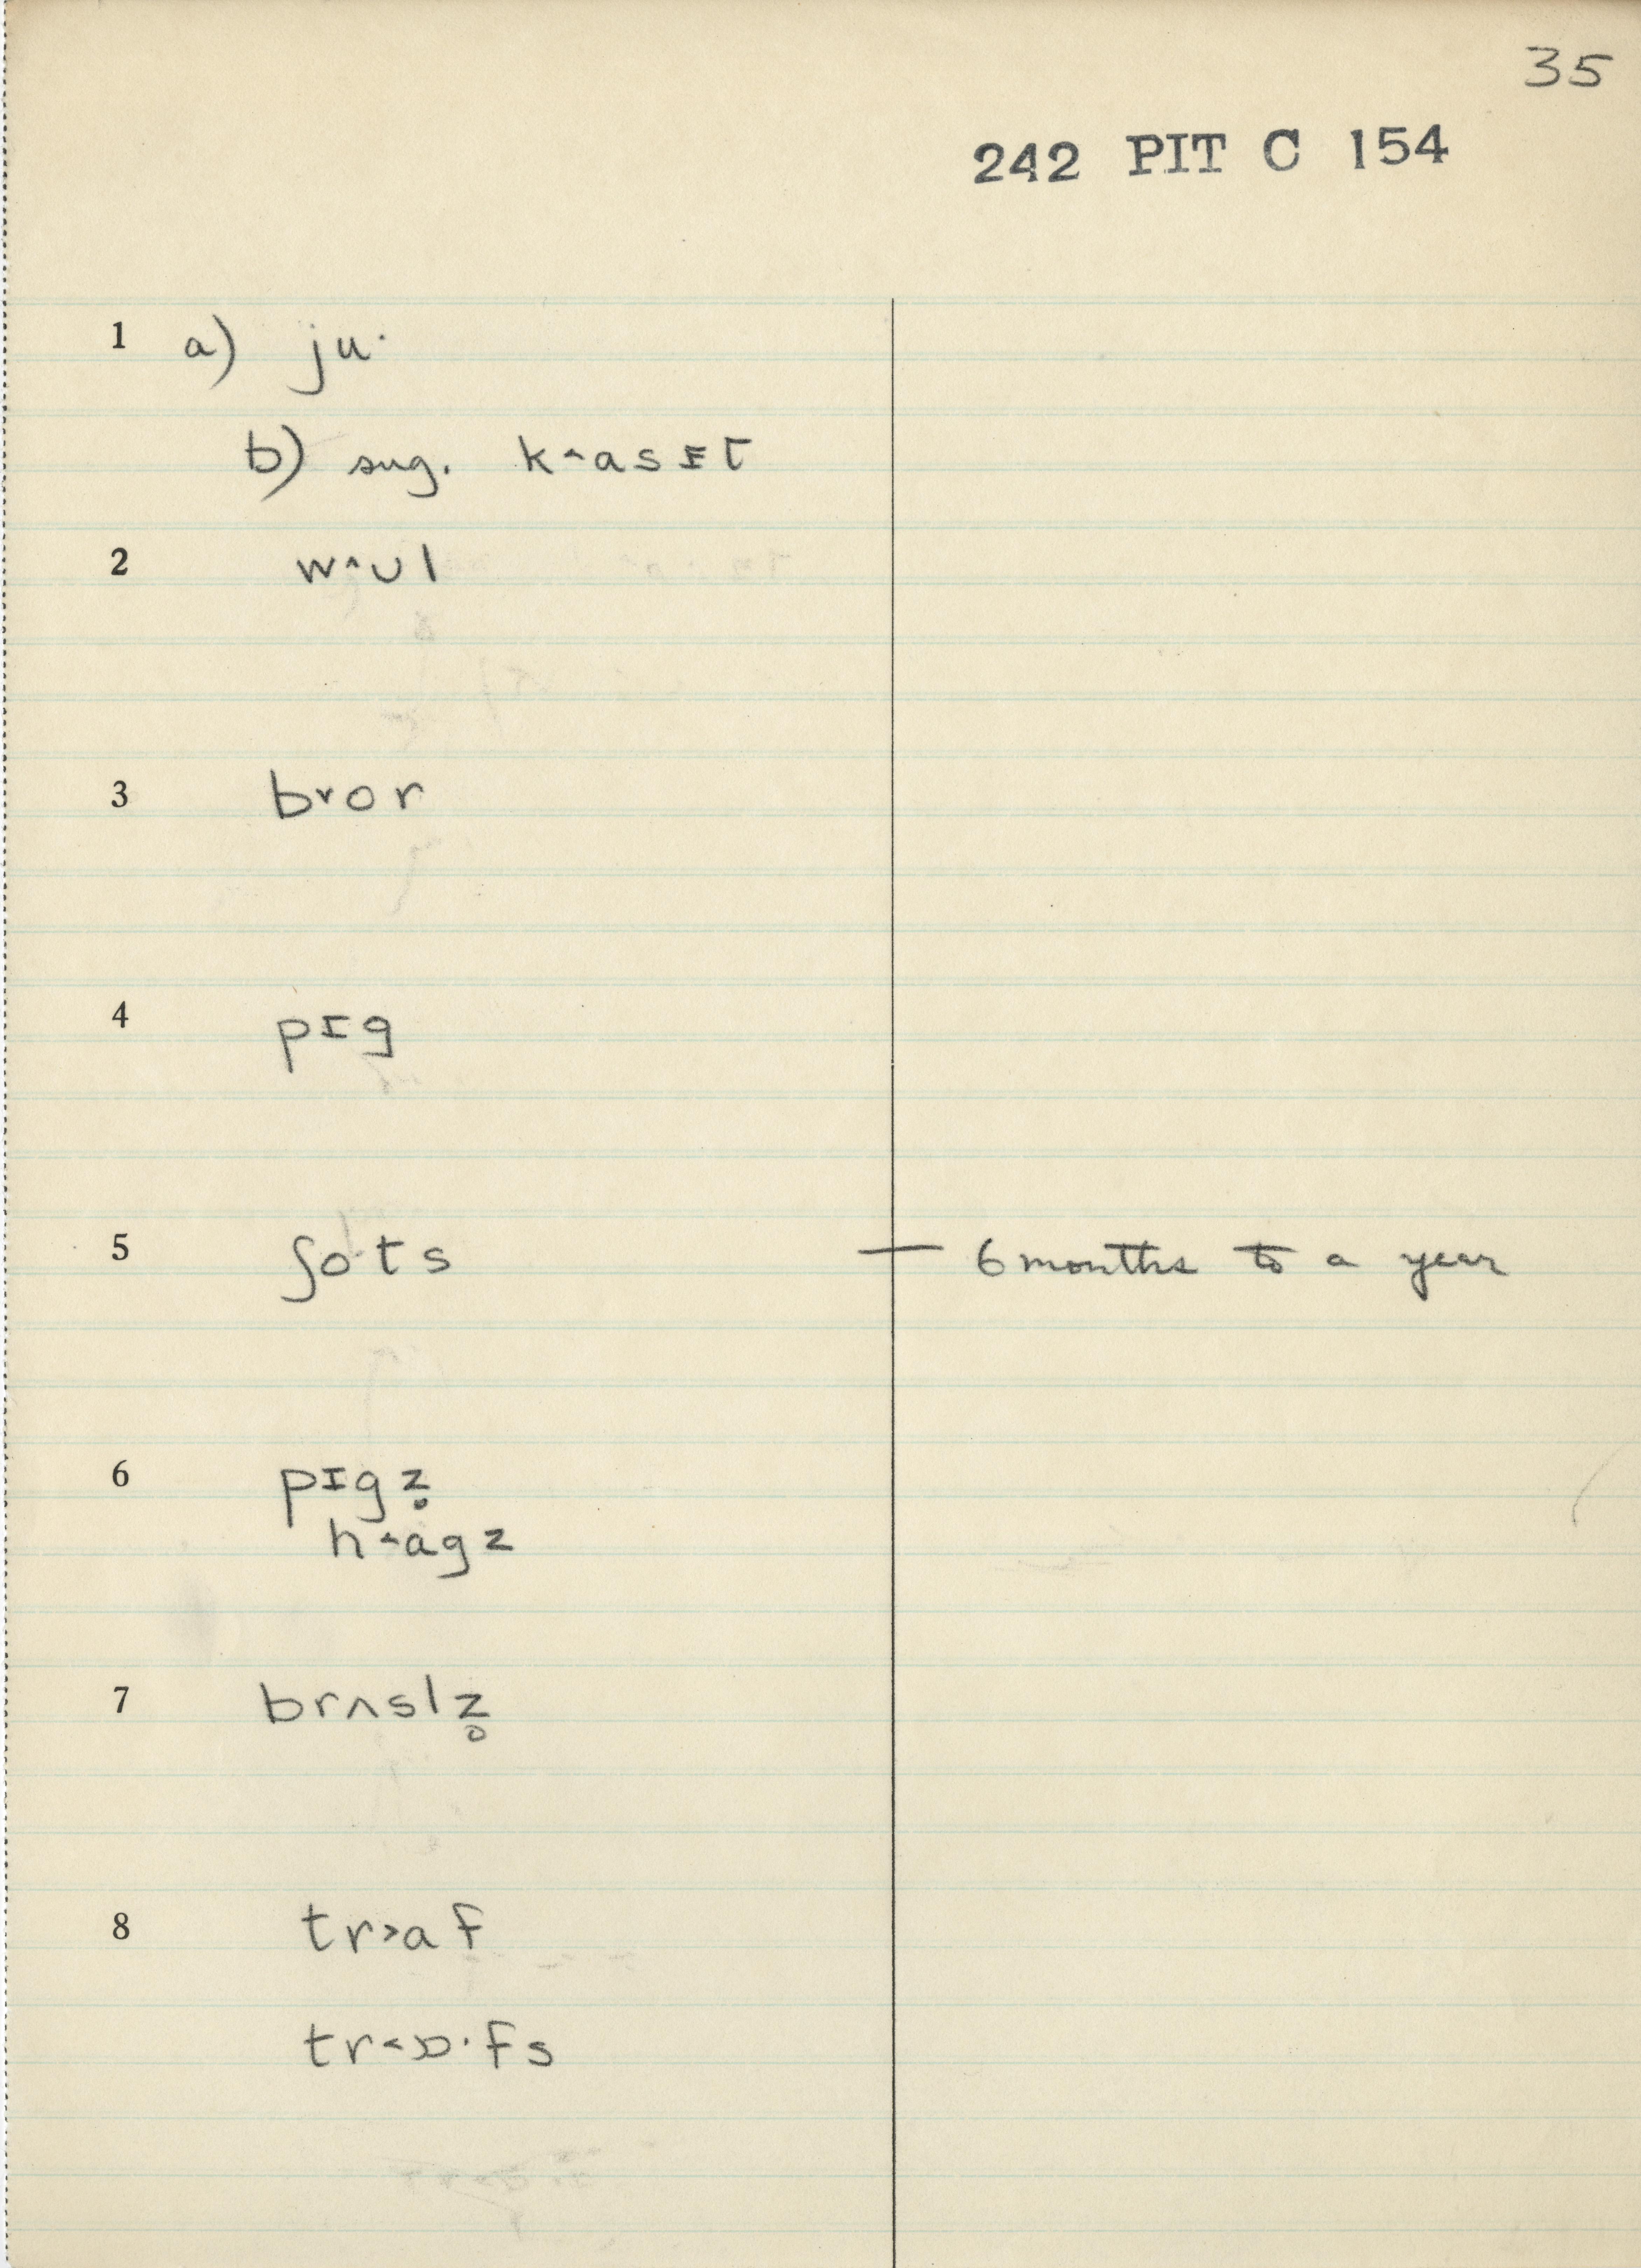 35
242 PIT C 154
1 a) ju·
b) sug. k˄asɪt
2 w˄ʊl
3 b˅or
4 pɪg
5 ʃo·ts — 6 months to a year
6 pɪgz̥
h˄agz
7 brʌslz̥
8 tr˃af
tr˂ɒ·fs